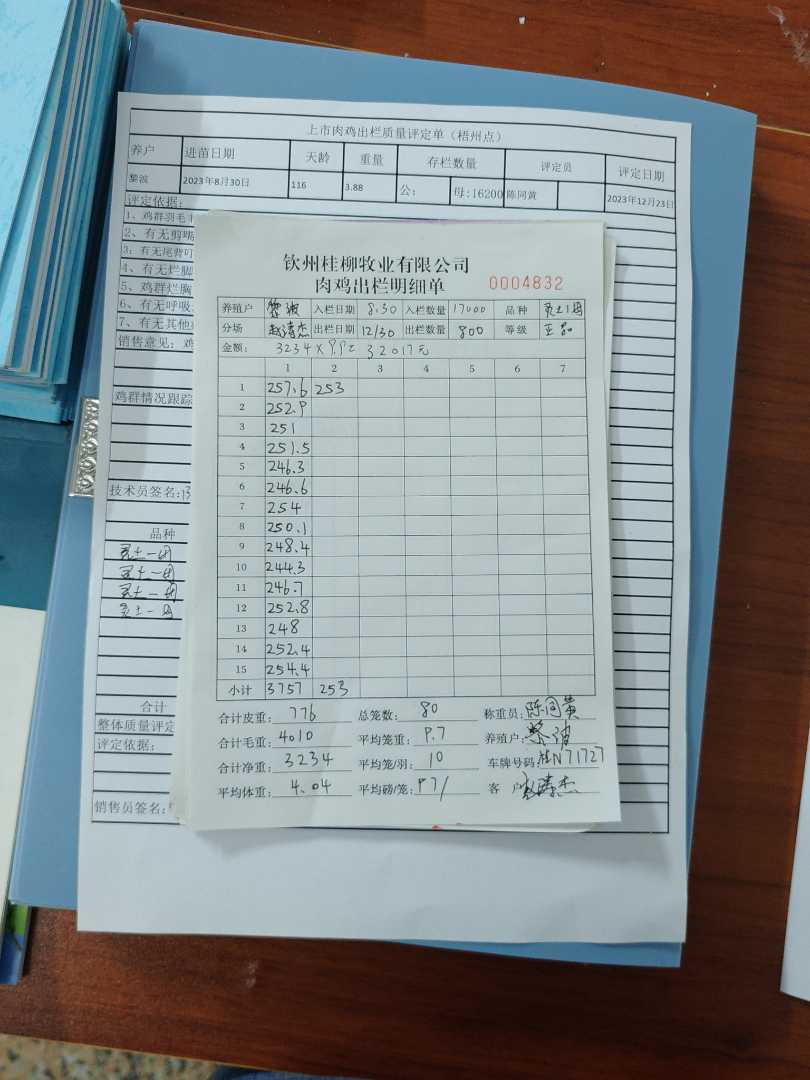 上市肉鸡出栏质量评定单（梧州点）
养户 进苗日期 天龄 重量 存栏数量 评定员 评定日期
黎波 2023年8月30日 116 3.88 公: 母:16200 陈同黄 2023年12月23日
评定依据:
1、鸡群羽毛
2、有无剪嘴
3、有无尾臂叮
4、有无烂脚
5、鸡群烂胸
6、有无呼吸
7、有无其他
销售意见: 鸡
鸡群情况跟踪
技术员签名:
品种
灵土一
灵土一
灵土一
灵土一
合计
整体质量评定
评定依据:
销售员签名:
钦州桂柳牧业有限公司
肉鸡出栏明细单 0004832
养殖户 黎波 入栏日期 8.30 入栏数量 17000 品种 灵土1
分场 赵涛杰 出栏日期 12/30 出栏数量 800 等级 正品
金额: 3234×9.9= 32017元
1 2 3 4 5 6 7
1 257.6 253
2 252.9
3 251
4 251.5
5 246.3
6 246.6
7 254
8 250.1
9 248.4
10 244.3
11 246.7
12 252.8
13 248
14 252.4
15 254.4
小计 3757 253
合计皮重: 776 总笼数: 80 称重员: 陈同黄
合计毛重: 4010 平均笼重: 9.7 养殖户: 黎波
合计净重: 3234 平均笼/羽: 10 车牌号码: 桂N71727
平均体重: 4.04 平均磅/笼: 97/ 客 户: 赵涛杰